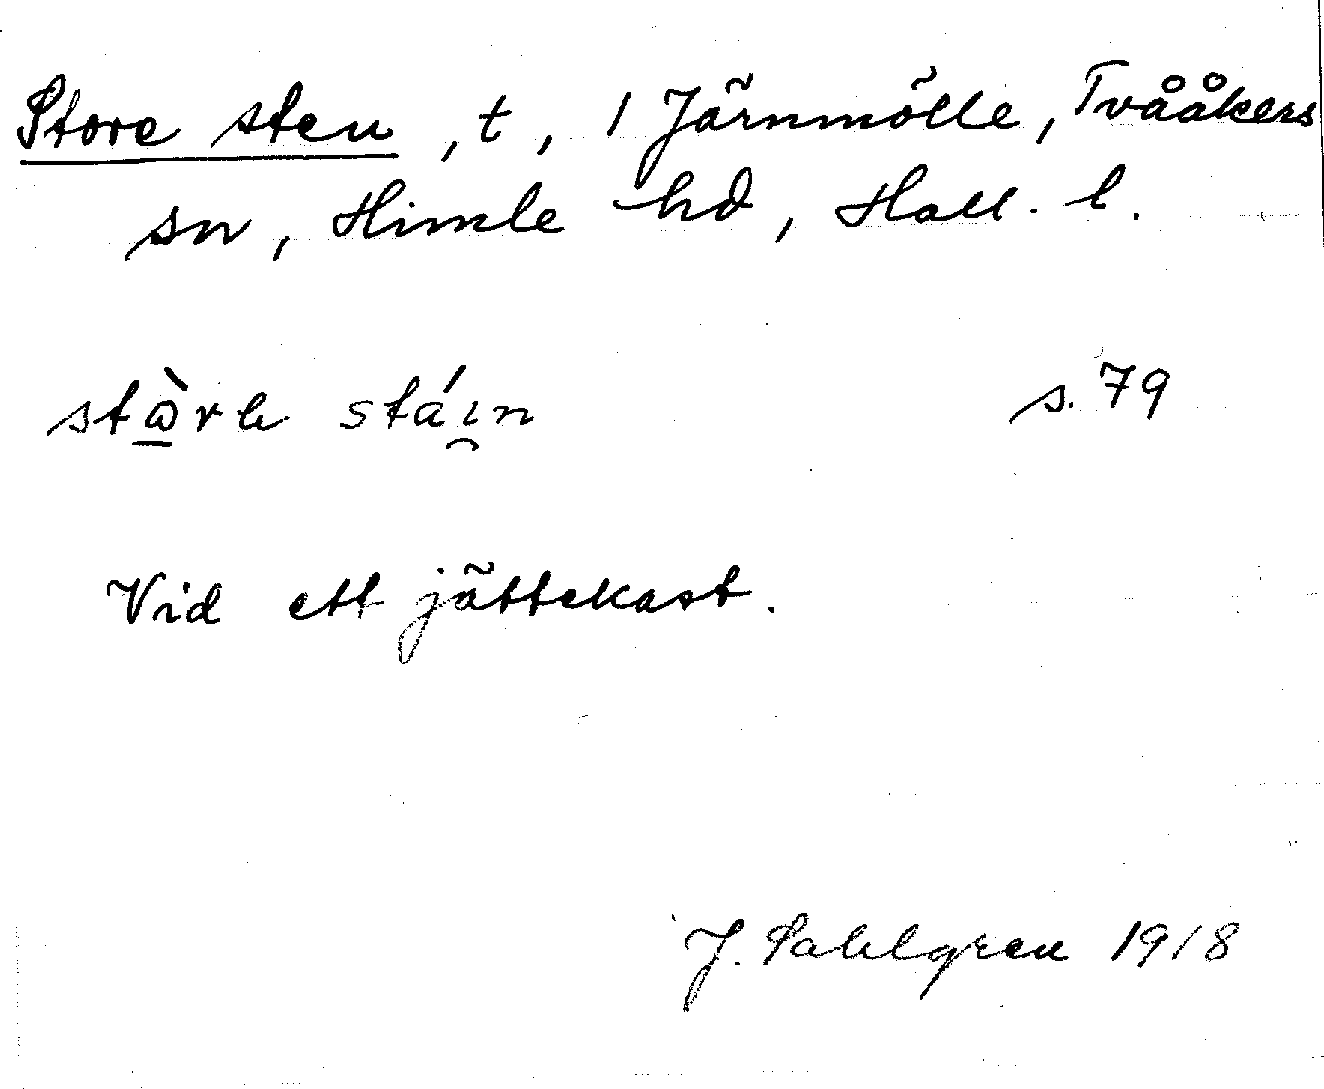 Store sten, t, 1 Järnmölle, Tvååkers
sn, Himle hd, Hall. l.
s. 79
Vid ett jättekast.
J. Sahlgren 1918